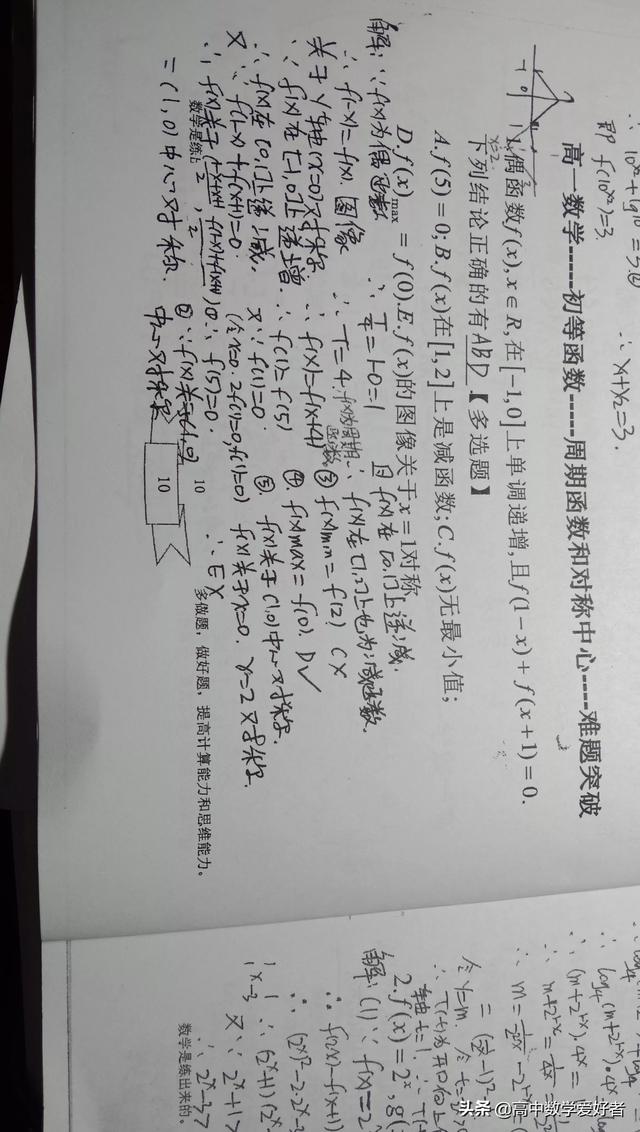 ∴ 10^{x₂} + lg10^{x₂} = 3. ②
即 f(10^{x₂})=3.
∴ x₁+x₂=3.
高一数学-----初等函数-----周期函数和对称中心----难题突破
1.偶函数f(x), x∈R, 在[-1,0]上单调递增, 且f(1-x)+f(x+1)=0.
x=2.
下列结论正确的有ABD【多选题】
A.f(5)=0; B.f(x)在[1,2]上是减函数; C.f(x)无最小值;
D.f(x)max=f(0). E.f(x)的图像关于x=1对称.
-1 0 1 2
解: ∵ f(x)为偶函数
∴ f(-x)=f(x). 图像
关于y轴(x=0)对称.
∵ f(x)在[-1,0]上递增.
∴ f(x)在[0,1]上递减.
又∵ f(1-x)+f(x+1)=0.
∴ f(x)关于(\frac{1-x+x+1}{2}, \frac{f(1-x)+f(x+1)}{2})
=(1,0)中心对称.
∴ \frac{T}{4}=1-0=1
∴ T=4. f(x)为周期函数
∴ f(x)=f(x+4)
∴ f(1)=f(5)
又∵ f(1)=0.
(令x=0. 2f(1)=0, f(1)=0)
∴ f(5)=0.
②∵ f(x)关于(1,0)
中心对称
且f(x)在[0,1]上递减.
∴ f(x)在[1,2]上也为减函数.
③ f(x)min=f(2) C×
④. f(x)max=f(0). D✓
⑤. f(x)关于(1,0)中心对称.
f(x)关于x=0. x=2对称.
∴ E×
数学是练
10
10
多做题，做好题，提高计算能力和思维能力。
∴ log₄(m+2^{1-x})·4^x
∴ (m+2^{1-x})·4^x=
∴ m+2^{1-x}=
∴ m=
令y=m.
轴t=1.
2.f(x)=2^x, g(
解: (1)∵ f(x)=2
∴ f(2x)-f(x+1)
又∵ 2^x+1>
∴ 2^x-3>
数学是练出来的。
头条 @高中数学爱好者